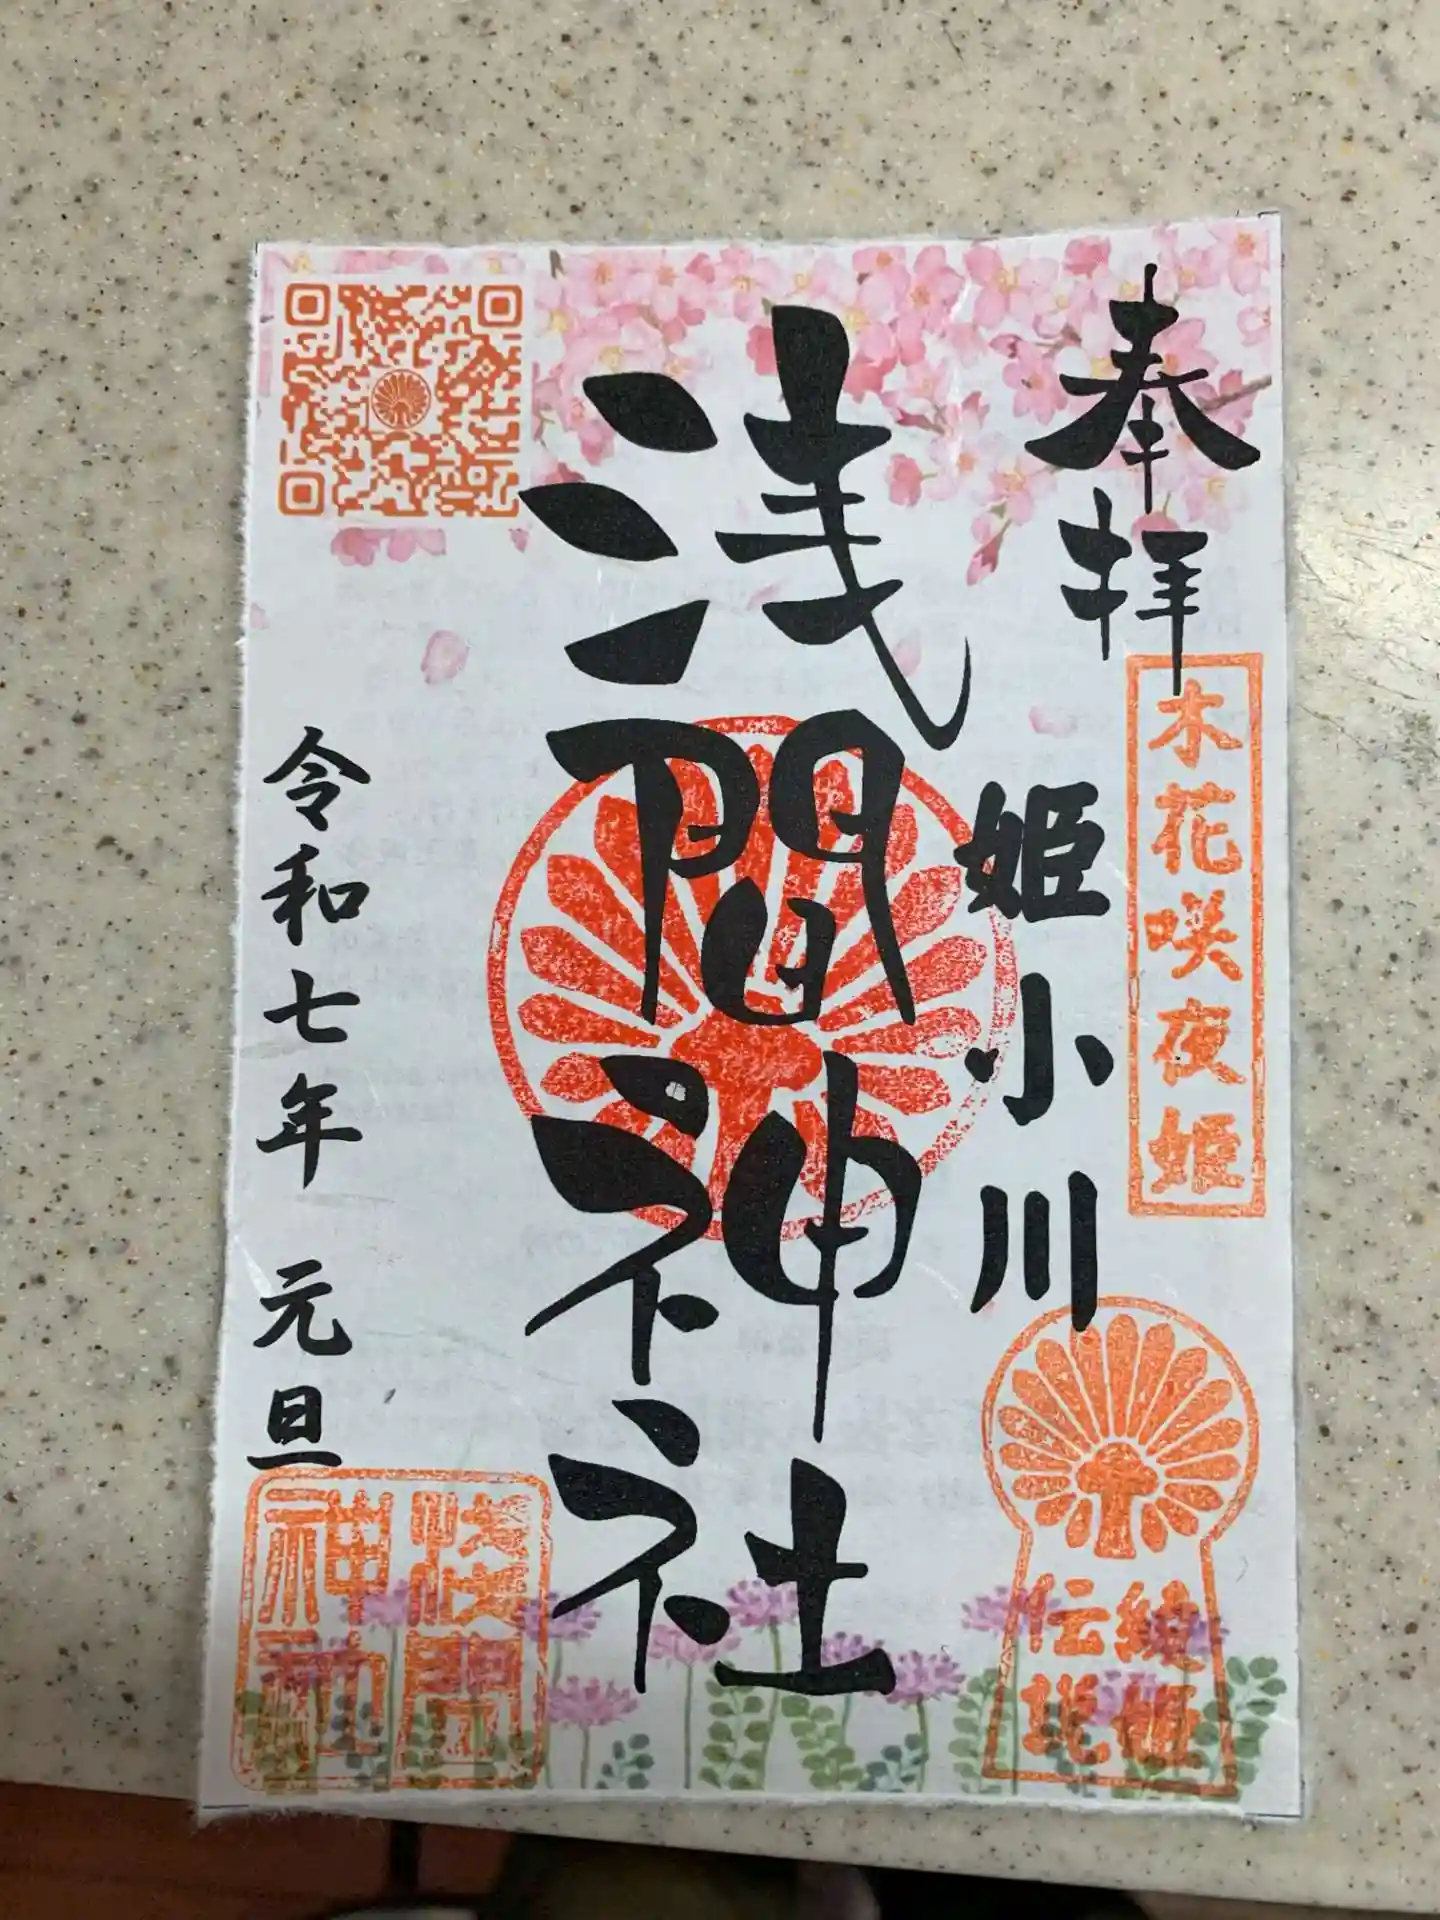 奉拝
木花咲夜姫
姫小川
綾姫
伝説
浅間神社
令和七年 元旦
浅間
神社